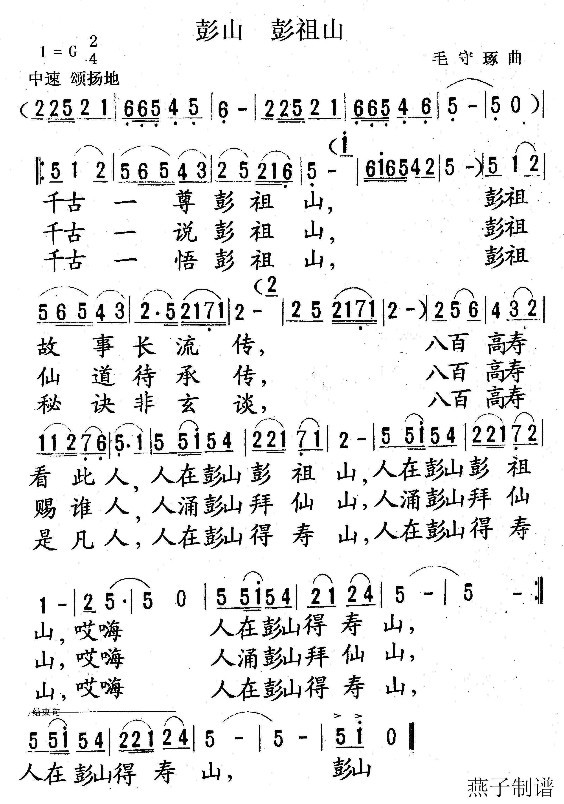 彭山 彭祖山
1=G 2/4
毛守琢 曲
中速 颂扬地
(22521|66545|6-|22521|665646|5-|50)
(i
‖:512|56543|25216|5-|6i6542|5-)|512|
千古一尊彭祖山, 彭祖
千古一说彭祖山, 彭祖
千古一悟彭祖山, 彭祖
(2
56543|2·52171|2-|252171|2-)|256|432|
故事长流传, 八百高寿
仙道待承传, 八百高寿
秘诀非玄谈, 八百高寿
112276|5·1|55i54|22171|2-|55i54|22172|
看此人,人在彭山彭祖山,人在彭山彭祖
赐谁人,人涌彭山拜仙山,人涌彭山拜仙
是凡人,人在彭山得寿山,人在彭山得寿
1-|25·|50|55i54|2124|5-|5-:‖
山,哎嗨 人在彭山得寿山,
山,哎嗨 人涌彭山拜仙山,
山,哎嗨 人在彭山得寿山,
结束句
55i54|22124|5-|5-|5i0‖
人在彭山得寿山, 彭山
燕子制谱